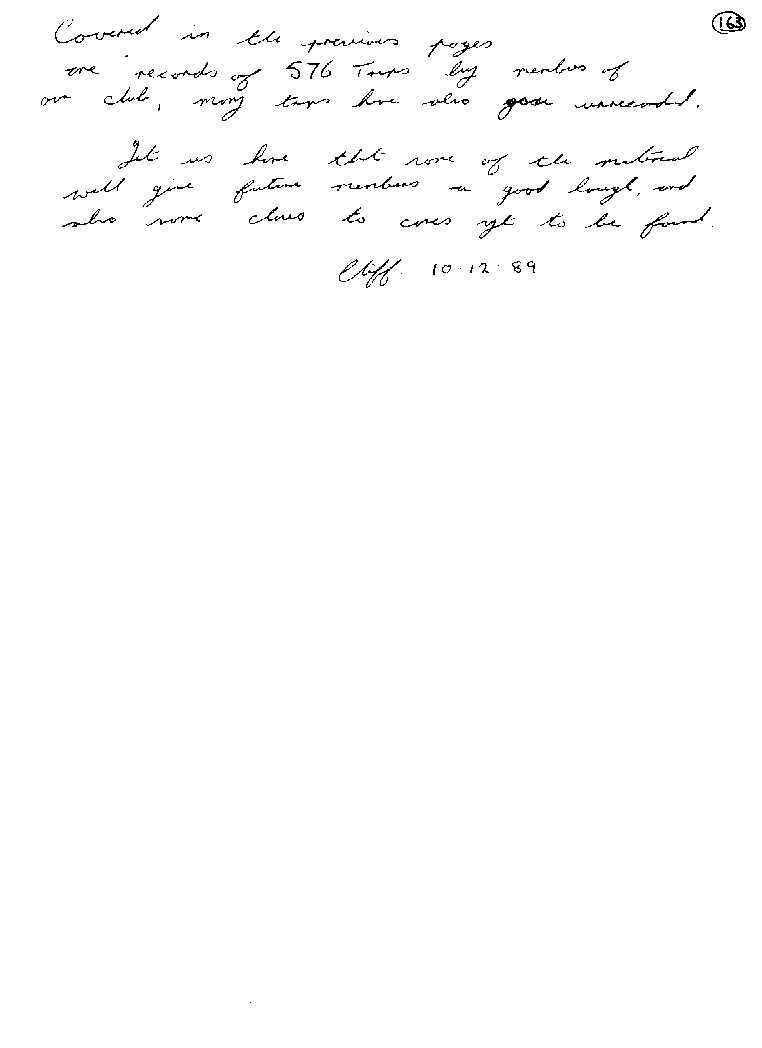 163
Covered in the previous pages
are records of 576 Trips by members of
our club, many trips have also gone unrecorded.
Let us hope that some of the material
will give future members a good laugh, and
also some clues to caves yet to be found.
Cliff. 10.12.89